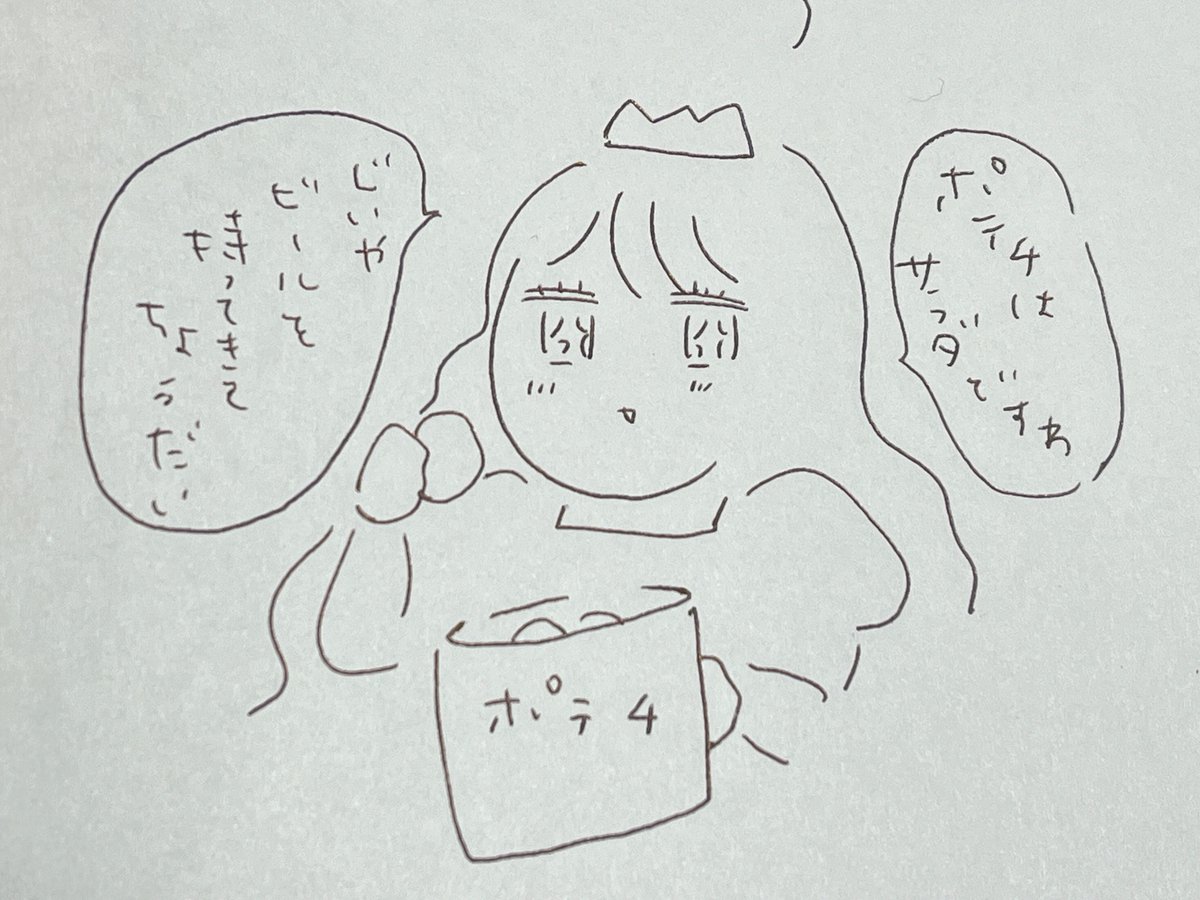 ポテ4は
サラダですわ
じいや
ビールを
もってきて
ちょうだい
ポテ4